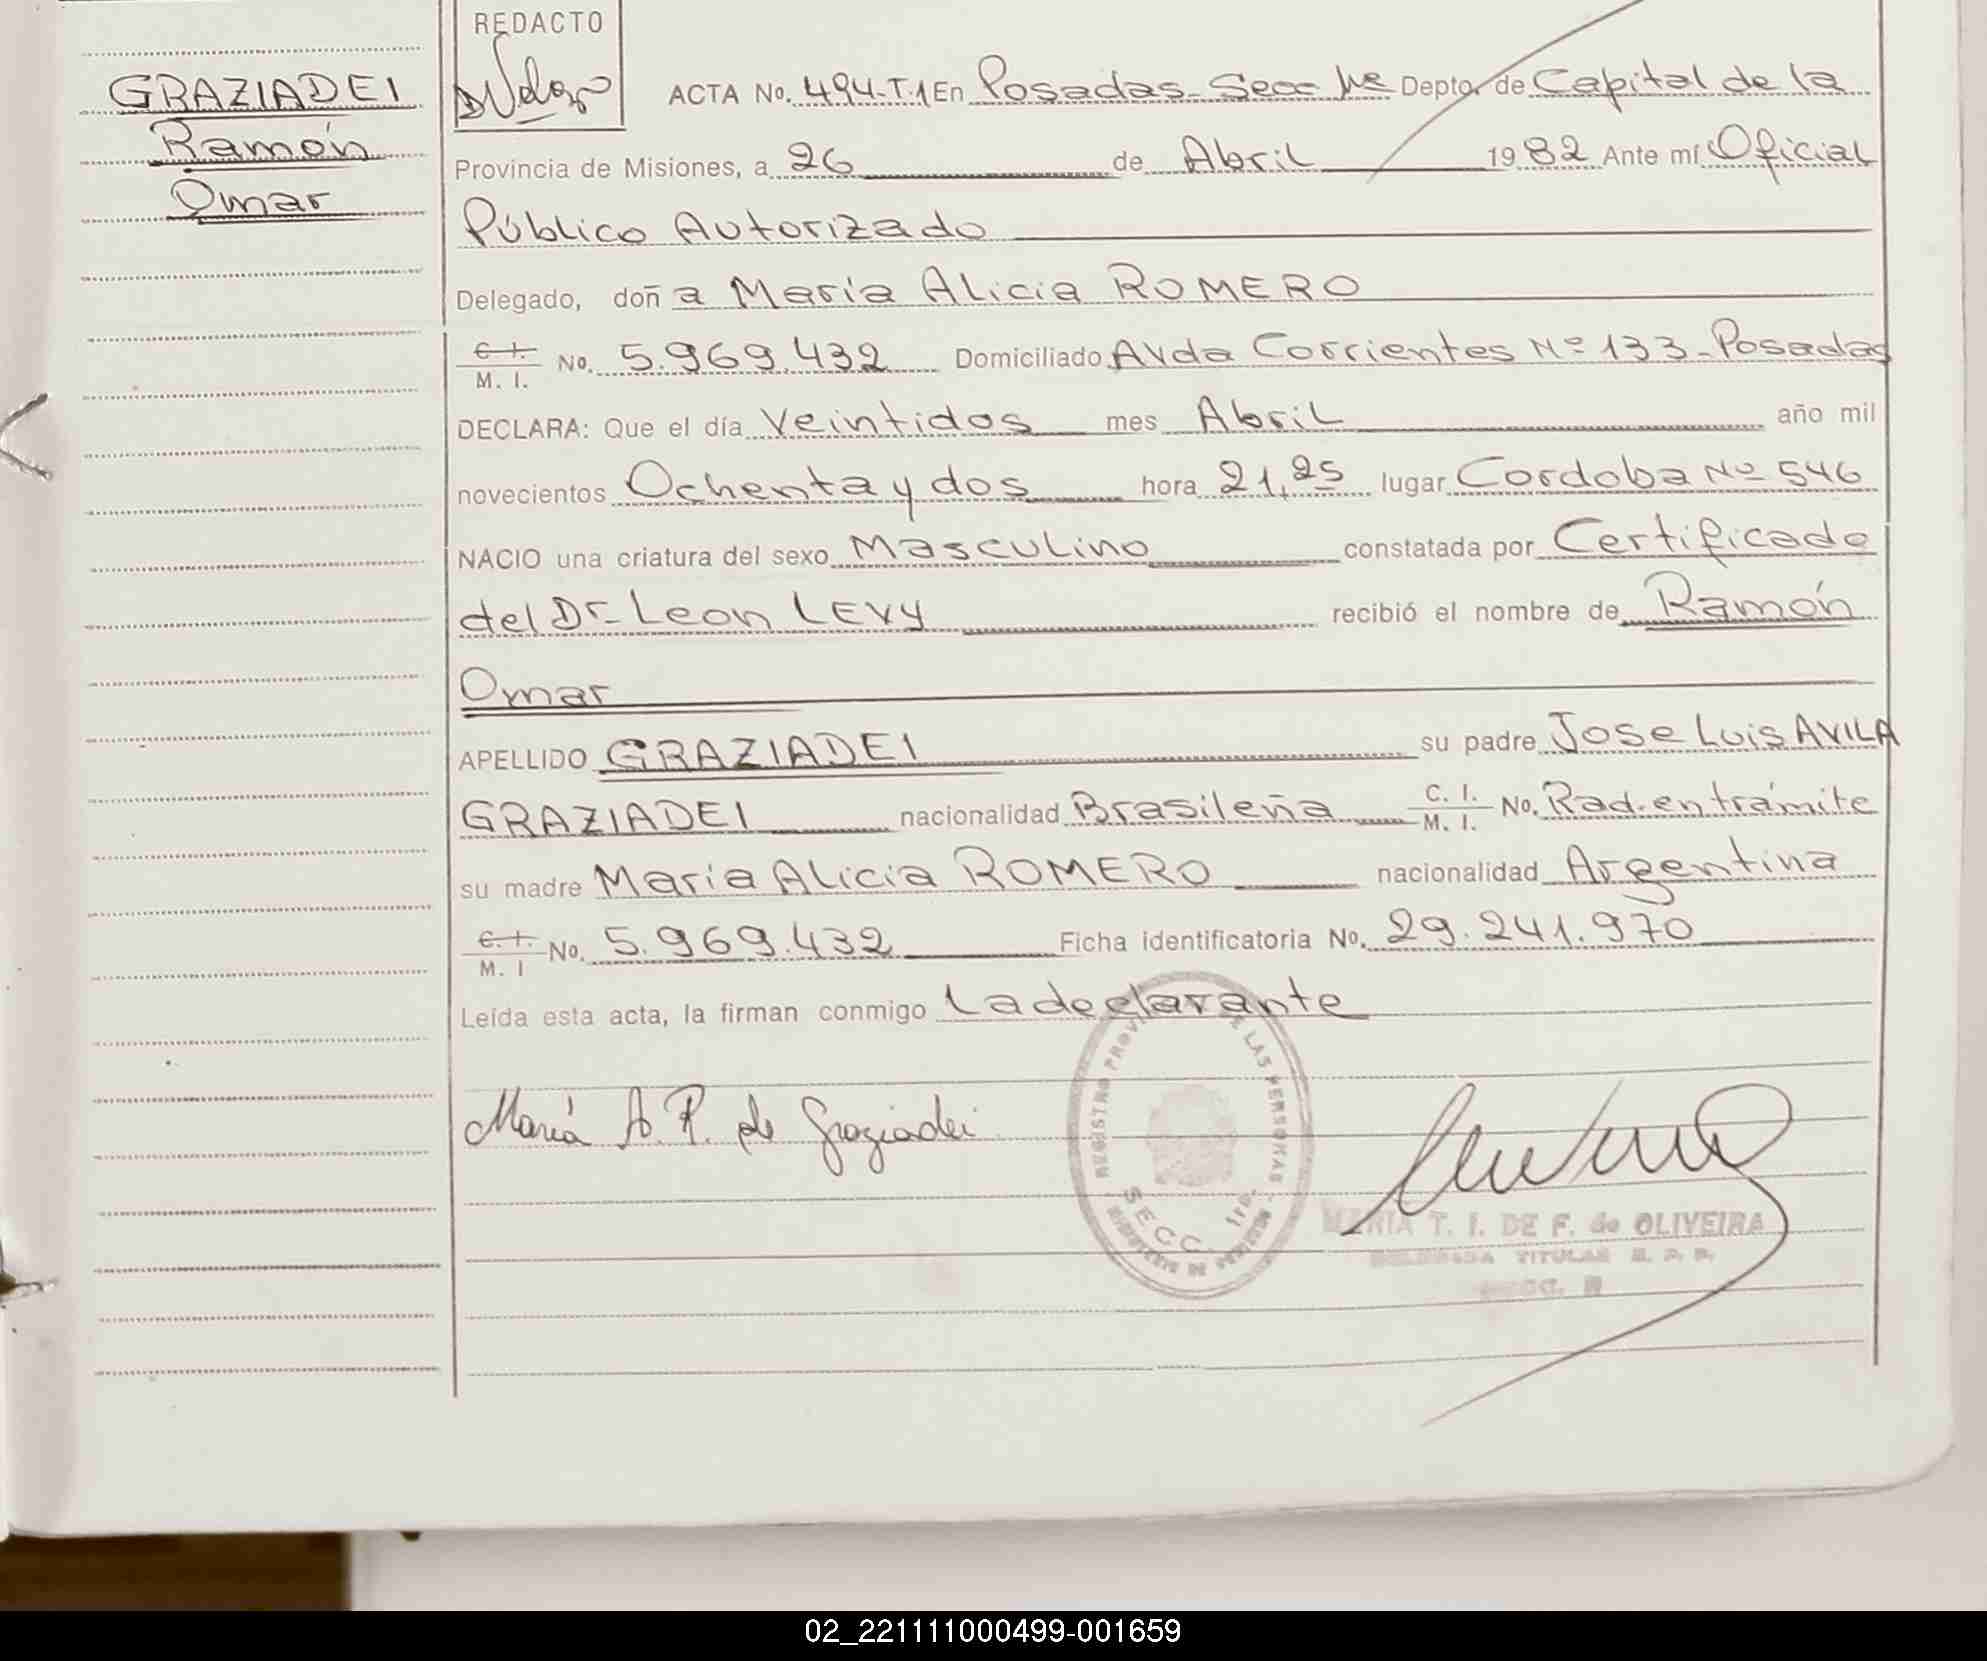 GRAZIADEI
Ramón
Omar
REDACTO
ACTA No. 494-T.1 En Posadas- Secc 1ra Depto. de Capital de la
Provincia de Misiones, a 26 de Abril 1982 Ante mí Oficial
Público Autorizado
Delegado, doña María Alicia ROMERO
C.I. M. I. No. 5.969.432 Domiciliado Avda Corrientes Nº 133-Posadas
DECLARA: Que el día Veintidos mes Abril año mil
novecientos Ochenta y dos hora 21,25 lugar Cordoba Nº 546
NACIO una criatura del sexo Masculino constatada por Certificado
del Dr- Leon LEVY recibió el nombre de Ramón
Omar
APELLIDO GRAZIADEI su padre Jose Luis AVILA
GRAZIADEI nacionalidad Brasileña C. I. M. I. No. Rad. en trámite
su madre María Alicia ROMERO nacionalidad Argentina
C.I. M. I No. 5.969.432 Ficha identificatoria No. 29.241.970
Leída esta acta, la firman conmigo La declarante
María A R. de Graziadei
REGISTRO PROVINCIAL DE LAS PERSONAS
SECC. 1ra.
MARIA T. I. DE F. de OLIVEIRA
DELEGADA TITULAR R. P. P.
02_221111000499-001659